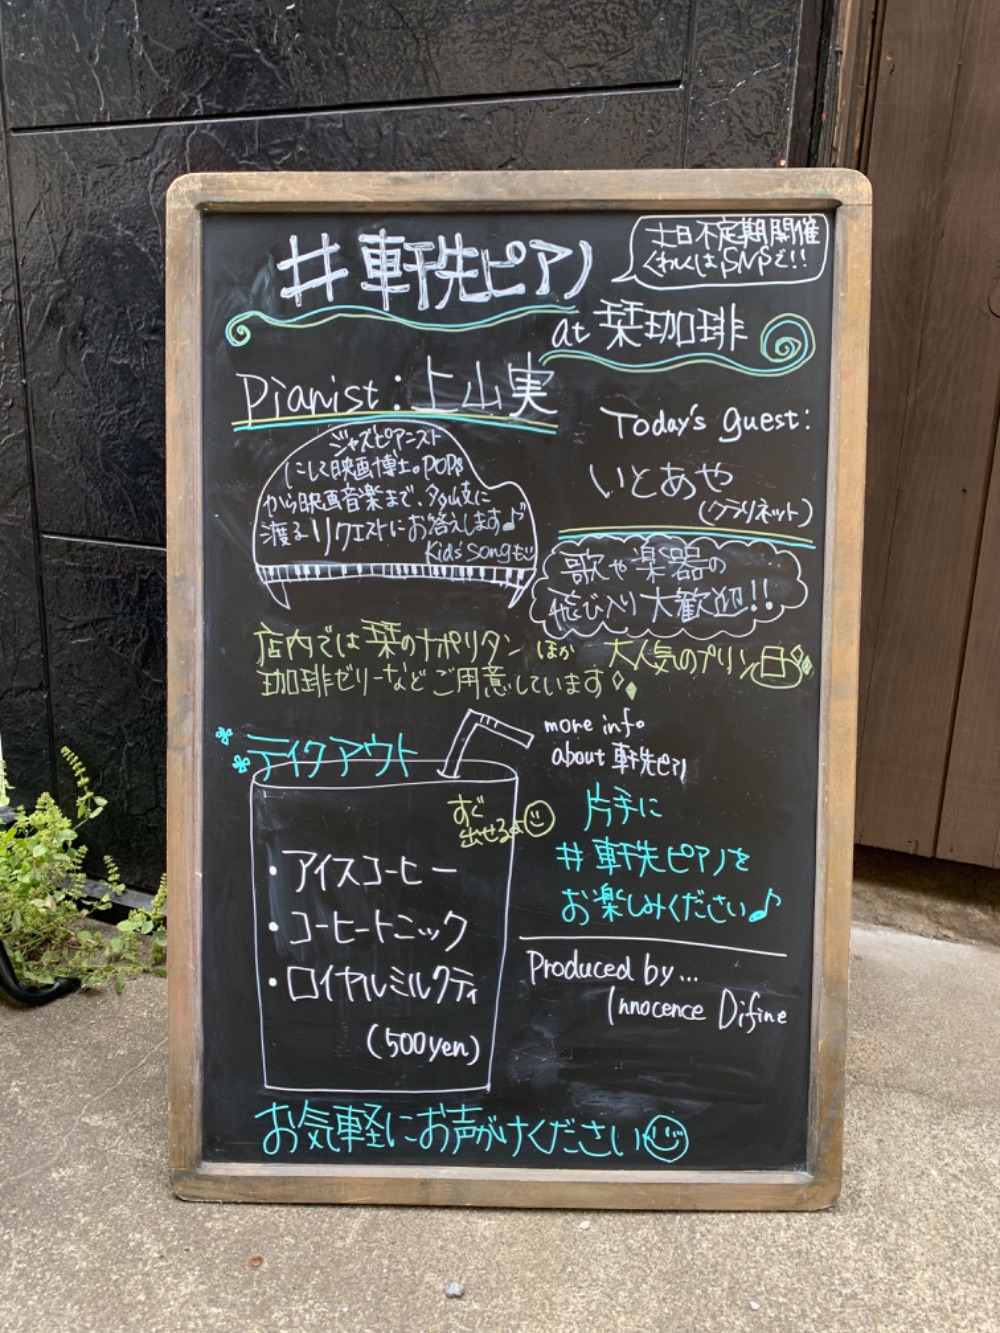 #軒先ピアノ
土日不定期開催
くわしくはSNSで!!
at 栞珈琲
Pianist:上山実
ジャズピアニスト
にして映画博士。POPs
から映画音楽まで、多岐に
渡るリクエストにお答えします♪
Kids' Songも
Today's guest:
いとあや
(クラリネット)
歌や楽器の
飛び入り大歓迎!!
店内では栞のナポリタン ほか 大人気のプリン
珈琲ゼリーなどご用意しています
テイクアウト
すぐ
出せるよ
・アイスコーヒー
・コーヒートニック
・ロイヤルミルクティ
(500yen)
more info
about 軒先ピアノ
片手に
#軒先ピアノを
お楽しみください♪
Produced by...
Innocence Difine
お気軽にお声がけください